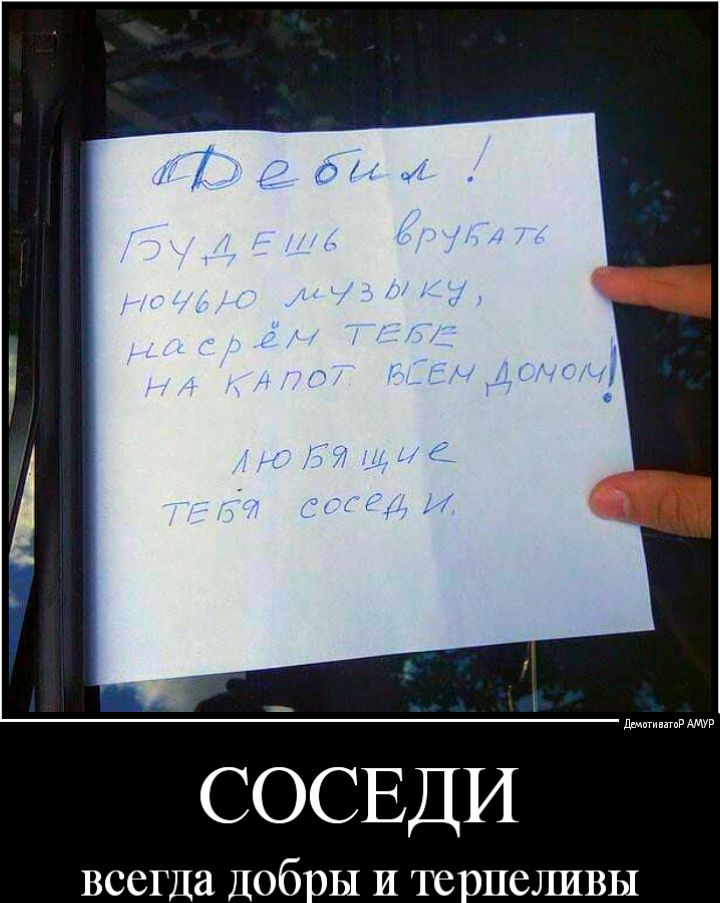 Дебил!
Будешь врубать
ночью музыку,
насрём тебе
на капот всем домом!
любящие
тебя соседи.
ДемотиватоР АМУР
СОСЕДИ
всегда добры и терпеливы